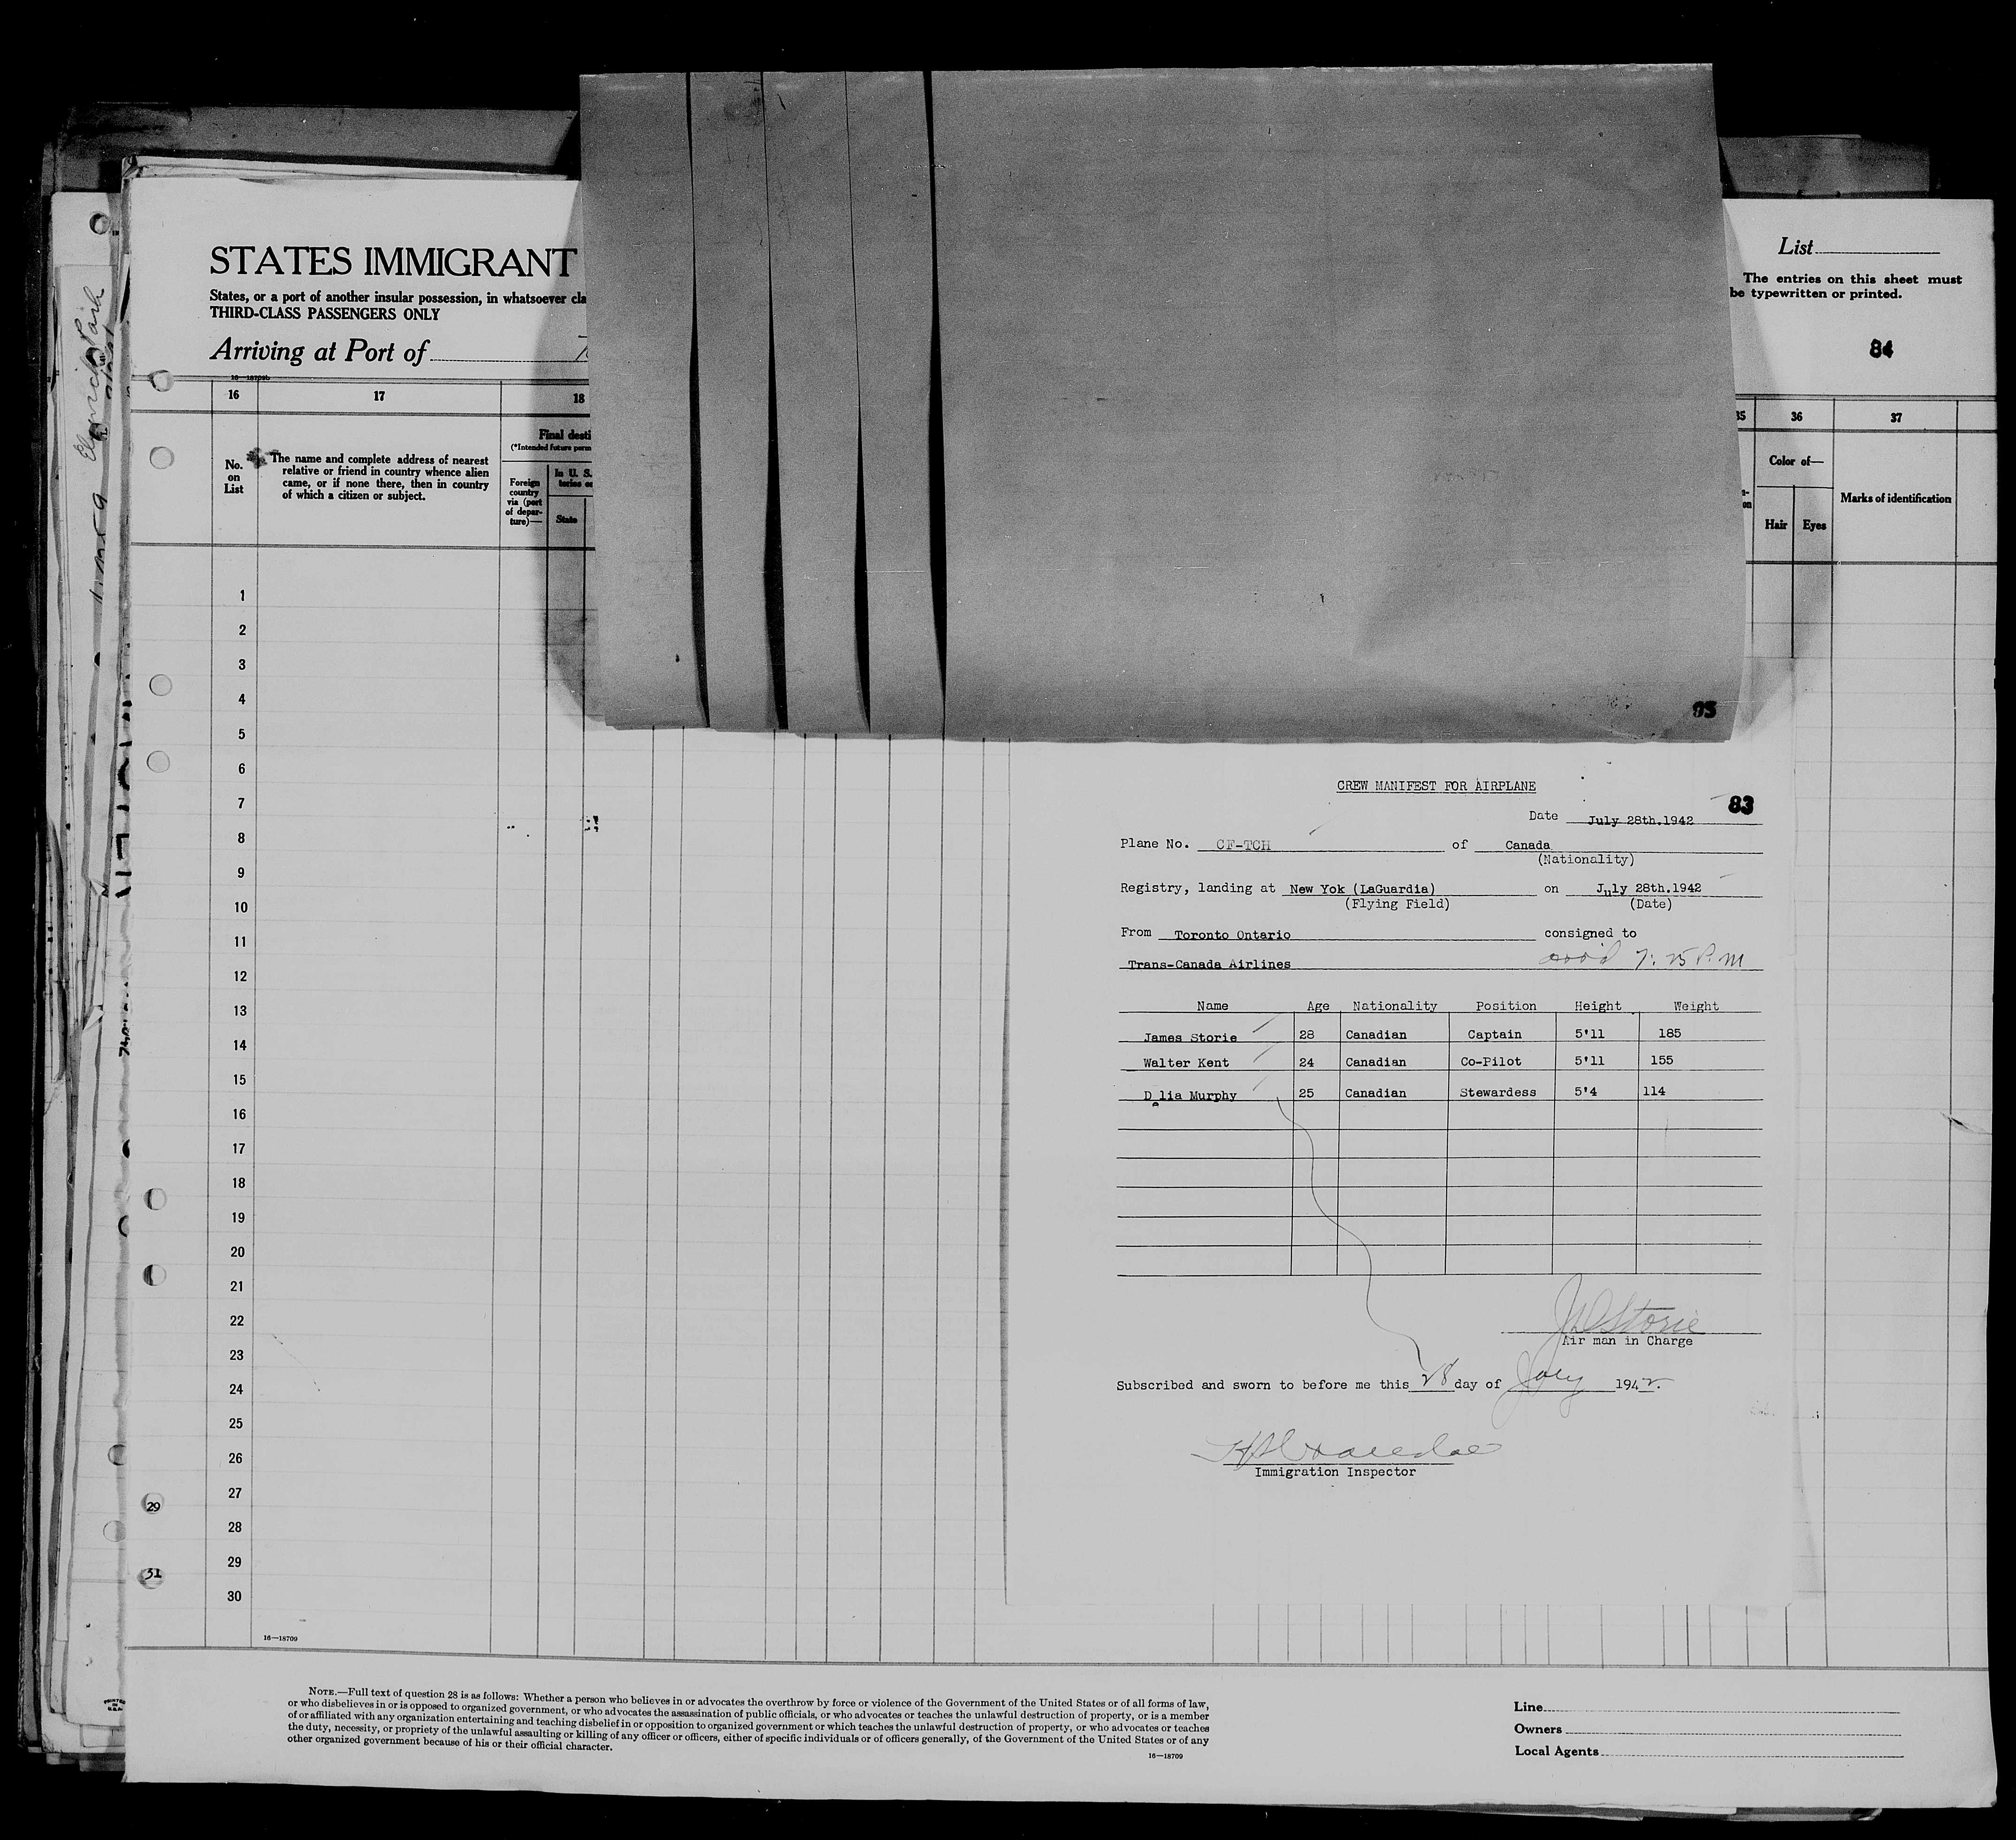 STATES IMMIGRANT
States, or a port of another insular possession, in whatsoever cla
THIRD-CLASS PASSENGERS ONLY
Arriving at Port of
List
The entries on this sheet must
be typewritten or printed.
84
16 17 18
35 36 37
No.
on
List
The name and complete address of nearest
relative or friend in country whence alien
came, or if none there, then in country
of which a citizen or subject.
Final desti
(*Intended future perm
Foreign
country
via (port
of depar-
ture)—
In U. S.
State
Color of—
Hair Eyes
Marks of identification
1
2
3
4
5
6
7
8
9
10
11
12
13
14
15
16
17
18
19
20
21
22
23
24
25
26
27
28
29
30
29
31
95
CREW MANIFEST FOR AIRPLANE
83
Date July 28th.1942
Plane No. CF-TCH of Canada
(Nationality)
Registry, landing at New Yok (LaGuardia) on July 28th.1942
(Flying Field) (Date)
From Toronto Ontario consigned to
Trans-Canada Airlines 7:25 P.M
Name Age Nationality Position Height Weight
James Storie 28 Canadian Captain 5'11 185
Walter Kent 24 Canadian Co-Pilot 5'11 155
Delia Murphy 25 Canadian Stewardess 5'4 114
Storie
Air man in Charge
Subscribed and sworn to before me this 28 day of July 1942.
Immigration Inspector
16—18709
NOTE.—Full text of question 28 is as follows: Whether a person who believes in or advocates the overthrow by force or violence of the Government of the United States or of all forms of law,
or who disbelieves in or is opposed to organized government, or who advocates the assassination of public officials, or who advocates or teaches the unlawful destruction of property, or is a member
of or affiliated with any organization entertaining and teaching disbelief in or opposition to organized government or which teaches the unlawful destruction of property, or who advocates or teaches
the duty, necessity, or propriety of the unlawful assaulting or killing of any officer or officers, either of specific individuals or of officers generally, of the Government of the United States or of any
other organized government because of his or their official character.
16—18709
Line
Owners
Local Agents